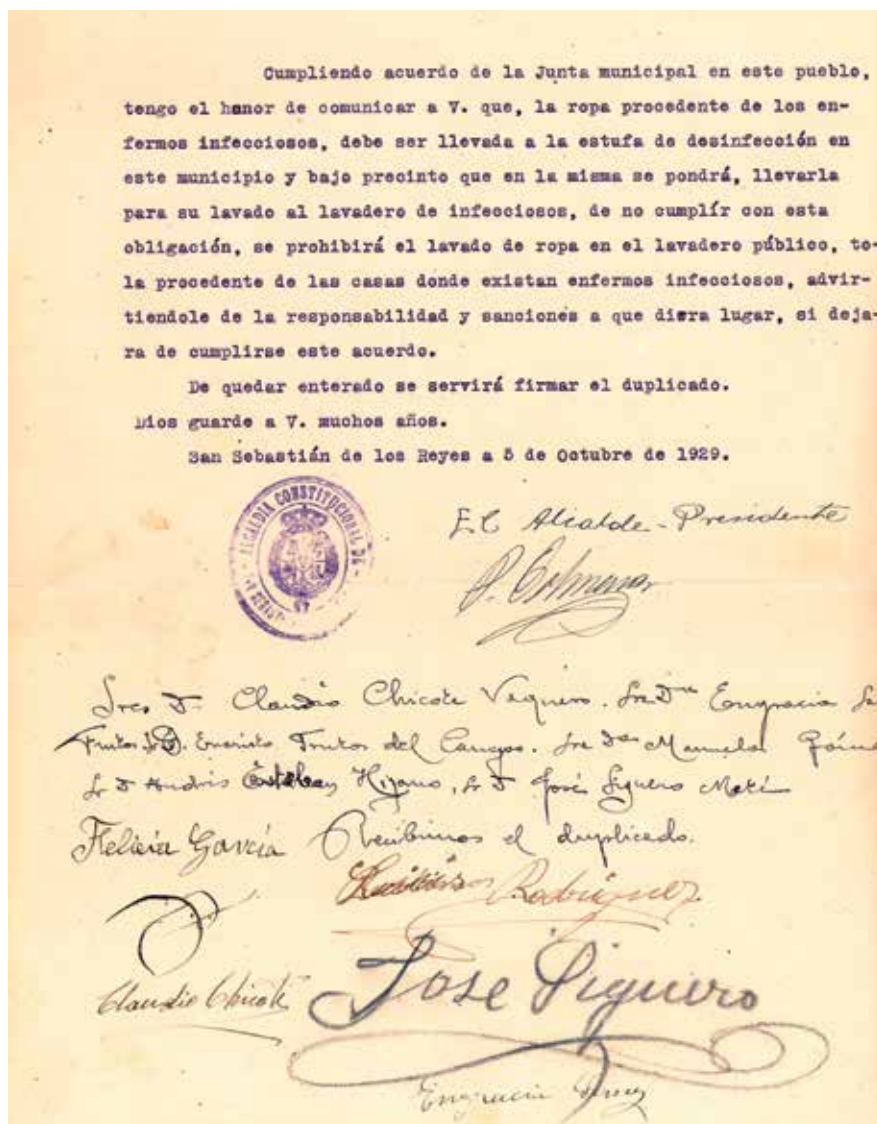 Cumpliendo acuerdo de la Junta municipal en este pueblo,
tengo el honor de comunicar a V. que, la ropa procedente de los en-
fermos infecciosos, debe ser llevada a la estufa de desinfección en
este municipio y bajo precinto que en la misma se pondrá, llevarla
para su lavado al lavadero de infecciosos, de no cumplír con esta
obligación, se prohibirá el lavado de ropa en el lavadero público, to-
la procedente de las casas donde existan enfermos infecciosos, advir-
tiendole de la responsabilidad y sanciones a que diera lugar, si deja-
ra de cumplirse este acuerdo.
De quedar enterado se servirá firmar el duplicado.
Dios guarde a V. muchos años.
San Sebastián de los Reyes a 5 de Octubre de 1929.
ALCALDIA CONSTITUCIONAL DE
El Alcalde-Presidente
Sres D. Claudio Chicote Vequero. Sra Dña Engracia
Frutos Sr D. Evaristo Frutos del Campo. Sra Dña Manuela
Sr D Andrés Esteban Hijano, Sr D José Siguero
Felicia García Recibimos el duplicado.
Rodriguez
Claudio Chicote
Jose Siguero
Engracia